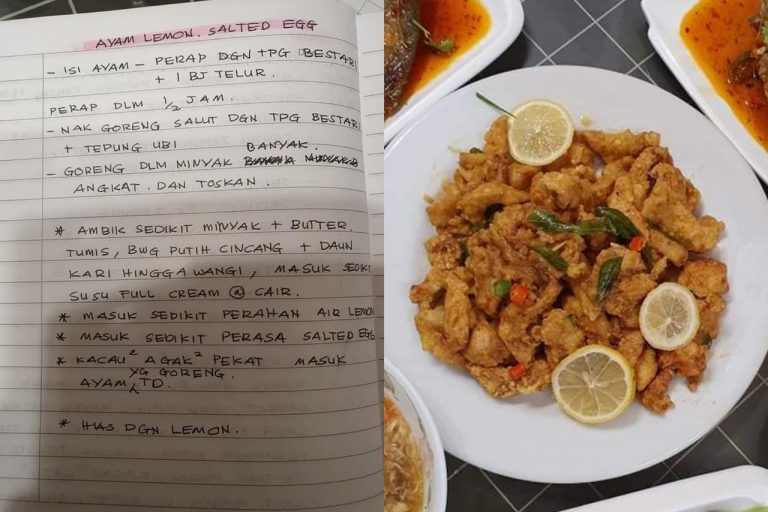 AYAM LEMON. SALTED EGG
- ISI AYAM - PERAP DGN TPG BESTARI
+ 1 BJ TELUR.
PERAP DLM 1/2 JAM.
- NAK GORENG SALUT DGN TPG BESTARI
+ TEPUNG UBI
- GORENG DLM MINYAK BANYAK.
ANGKAT. DAN TOSKAN.
* AMBIK SEDIKIT MINYAK + BUTTER.
TUMIS, BWG PUTIH CINCANG + DAUN
KARI HINGGA WANGI, MASUK SEDIKIT
SUSU FULL CREAM @ CAIR.
* MASUK SEDIKIT PERAHAN AIR LEMON
* MASUK SEDIKIT PERASA SALTED EGG
* KACAU² AGAK² PEKAT MASUK
AYAM YG GORENG TD.
* HIAS DGN LEMON.